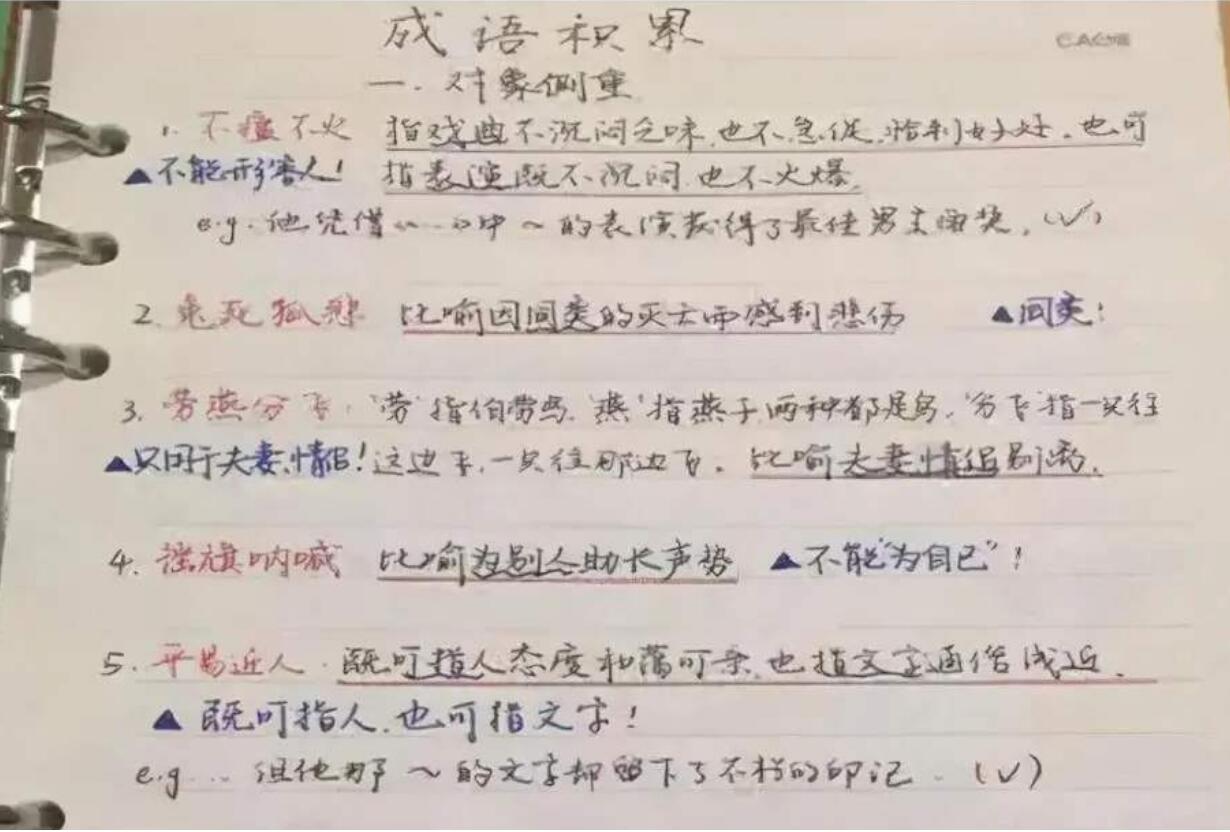 成语积累
一.对象侧重
1. 不瘟不火 指戏曲不沉闷乏味,也不急促,恰到好处。也可
▲不能形容人! 指表演既不沉闷,也不火爆。
e.g. 他凭借《……》中~的表演获得了最佳男主角奖。(√)
2. 兔死狐悲 比喻因同类的灭亡而感到悲伤 ▲同类!
3. 劳燕分飞:"劳"指伯劳鸟,"燕"指燕子,两种都是鸟,"分飞"指一只往
▲只用于夫妻、情侣! 这边飞,一只往那边飞。比喻夫妻、情侣别离。
4. 摇旗呐喊 比喻为别人助长声势 ▲不能"为自己"!
5. 平易近人.既可指人态度和蔼可亲,也指文字通俗浅近.
▲ 既可指人,也可指文字!
e.g.... 但他那~的文字却留下了不朽的印记.(√)